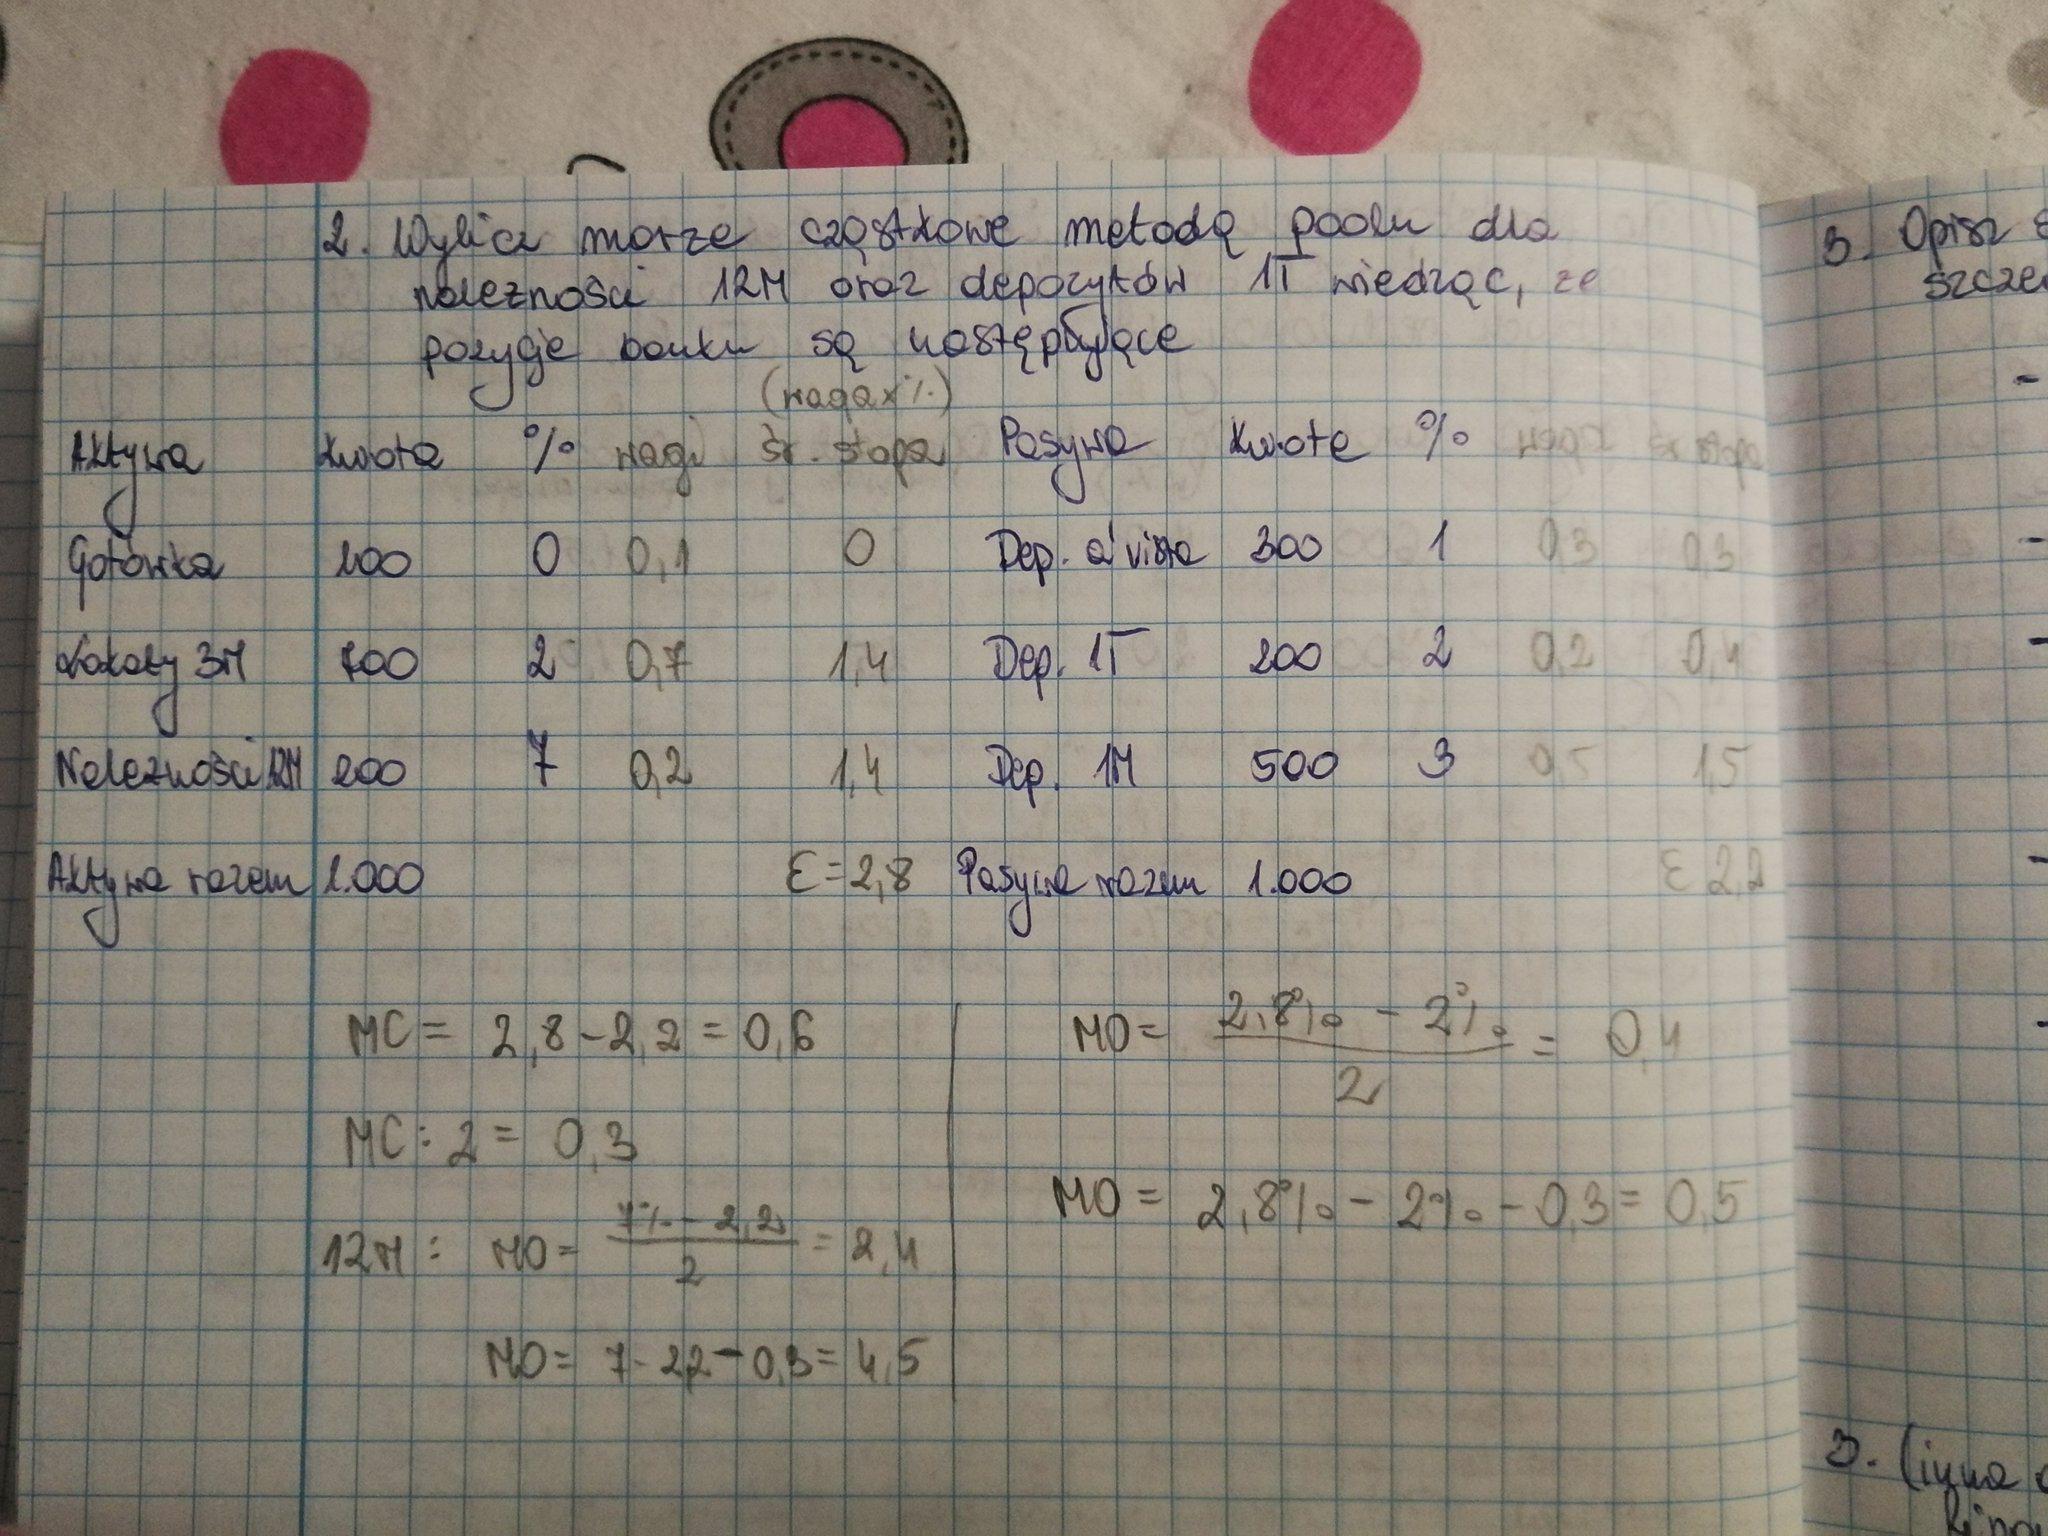 2. Wylicz marże cząstkowe metodą poolu dla
należności 12M oraz depozytów 1T wiedząc, że
pozycje banku są następujące
(waga x %)
Aktywa kwota % wagi śr. stopa Pasywa kwota % waga śr stopa
Gotówka 100 0 0,1 0 Dep. a'vista 300 1 0,3 0,3
Lokaty 3M 700 2 0,7 1,4 Dep. 1T 200 2 0,2 0,4
Należności 12M 200 7 0,2 1,4 Dep. 1M 500 3 0,5 1,5
Aktywa razem 1.000 Ɛ = 2,8 Pasywa razem 1.000 Ɛ 2,2
MC = 2,8 - 2,2 = 0,6
MC : 2 = 0,3
12M : MO = 7% - 2,2 / 2 = 2,4
MO = 7 - 2,2 - 0,3 = 4,5
MO = 2,8% - 2% / 2 = 0,4
MO = 2,8% - 2% - 0,3 = 0,5
3. Opisz
3. (inna